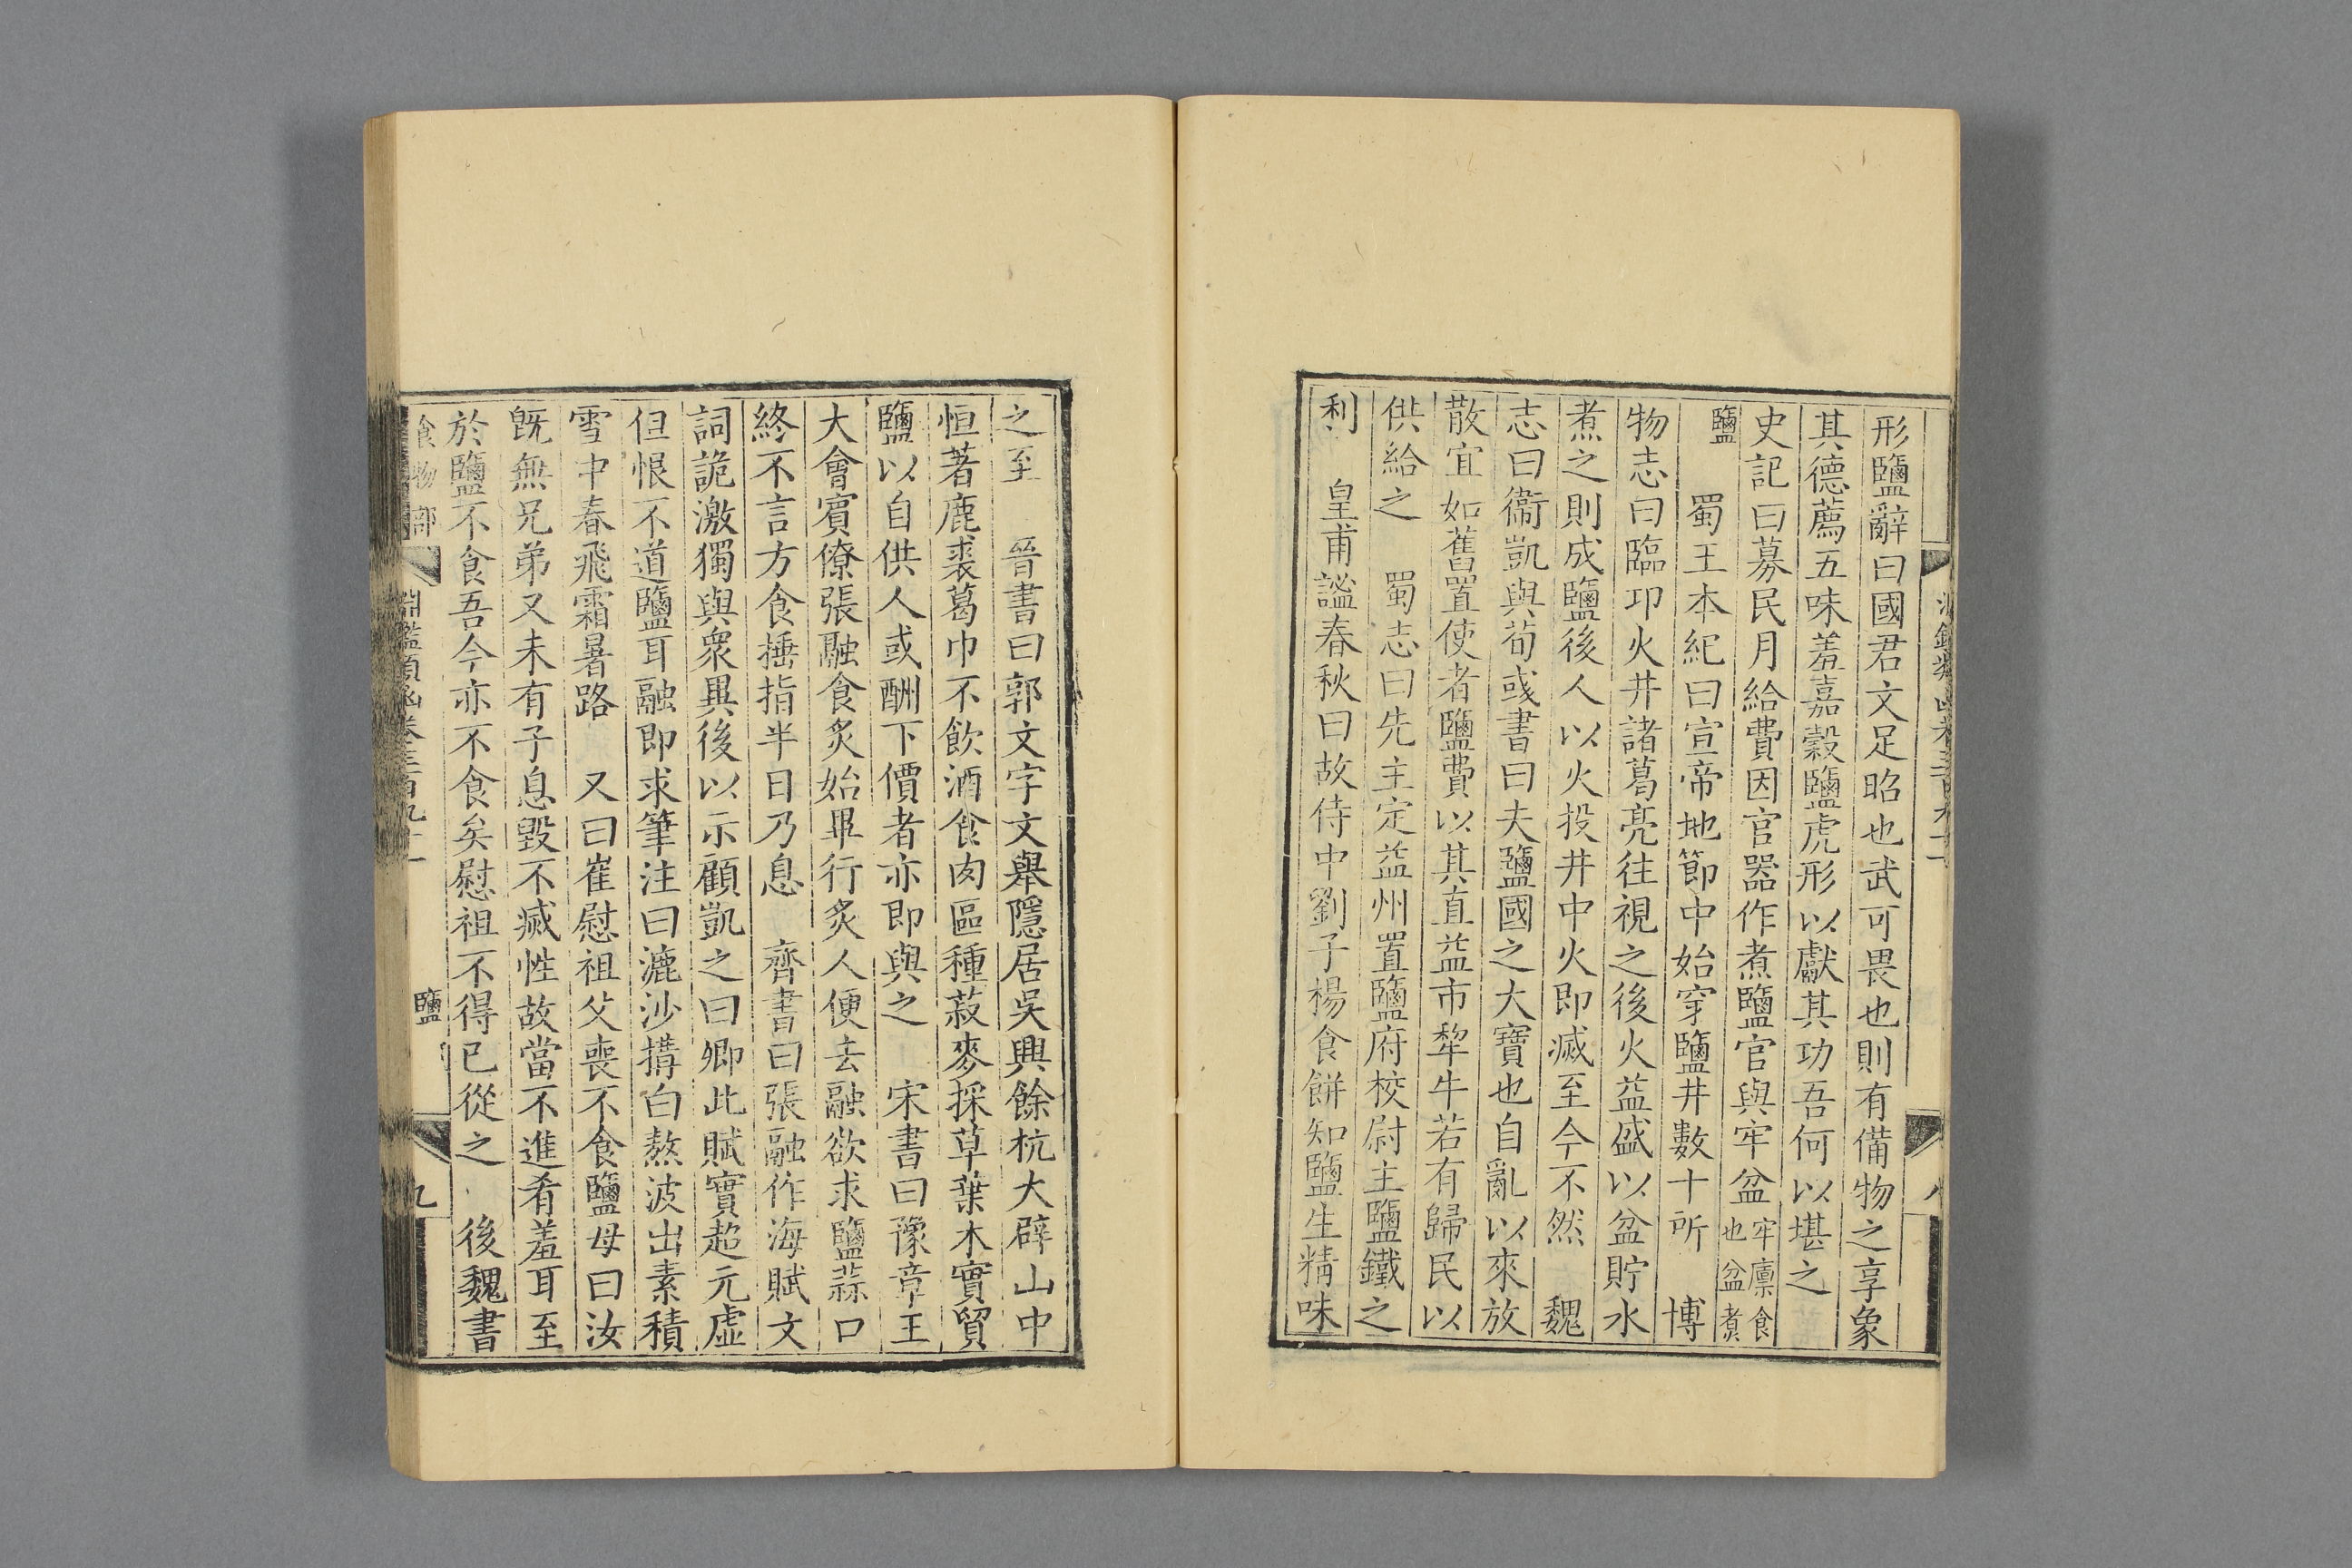 形鹽辭曰國君文足昭也武可畏也則有備物之享象
其德薦五味羞嘉穀鹽虎形以獻其功吾何以堪之
史記曰募民月給費因官器作煮鹽官與牢盆牢廩食也盆煮
鹽 蜀王本紀曰宣帝地節中始穿鹽井數十所 博
物志曰臨卭火井諸葛亮往視之後火益盛以盆貯水
煮之則成鹽後人以火投井中火即滅至今不然 魏
志曰衞凱與荀彧書曰夫鹽國之大寶也自亂以來放
散宜如舊置使者鹽費以其直益市犂牛若有歸民以
供給之 蜀志曰先主定益州置鹽府校尉主鹽鐵之
利 皇甫謐春秋曰故侍中劉子楊食餅知鹽生精味
之至 晉書曰郭文字文舉隱居吳興餘杭大辟山中
恒著鹿裘葛巾不飲酒食肉區種菽麥採草葉木實貿
鹽以自供人或酬下價者亦即與之 宋書曰豫章王
大會賓僚張融食炙始畢行炙人便去融欲求鹽蒜口
終不言方食捶指半日乃息 齊書曰張融作海賦文
詞詭激獨與衆異後以示顧凱之曰卿此賦實超元虛
但恨不道鹽耳融即求筆注曰漉沙搆白熬波出素積
雪中春飛霜暑路 又曰崔慰祖父喪不食鹽母曰汝
旣無兄弟又未有子息毀不滅性故當不進肴羞耳至
於鹽不食吾今亦不食矣慰祖不得已從之 後魏書
食物部 淵鑑類函卷三百九十一 鹽 九